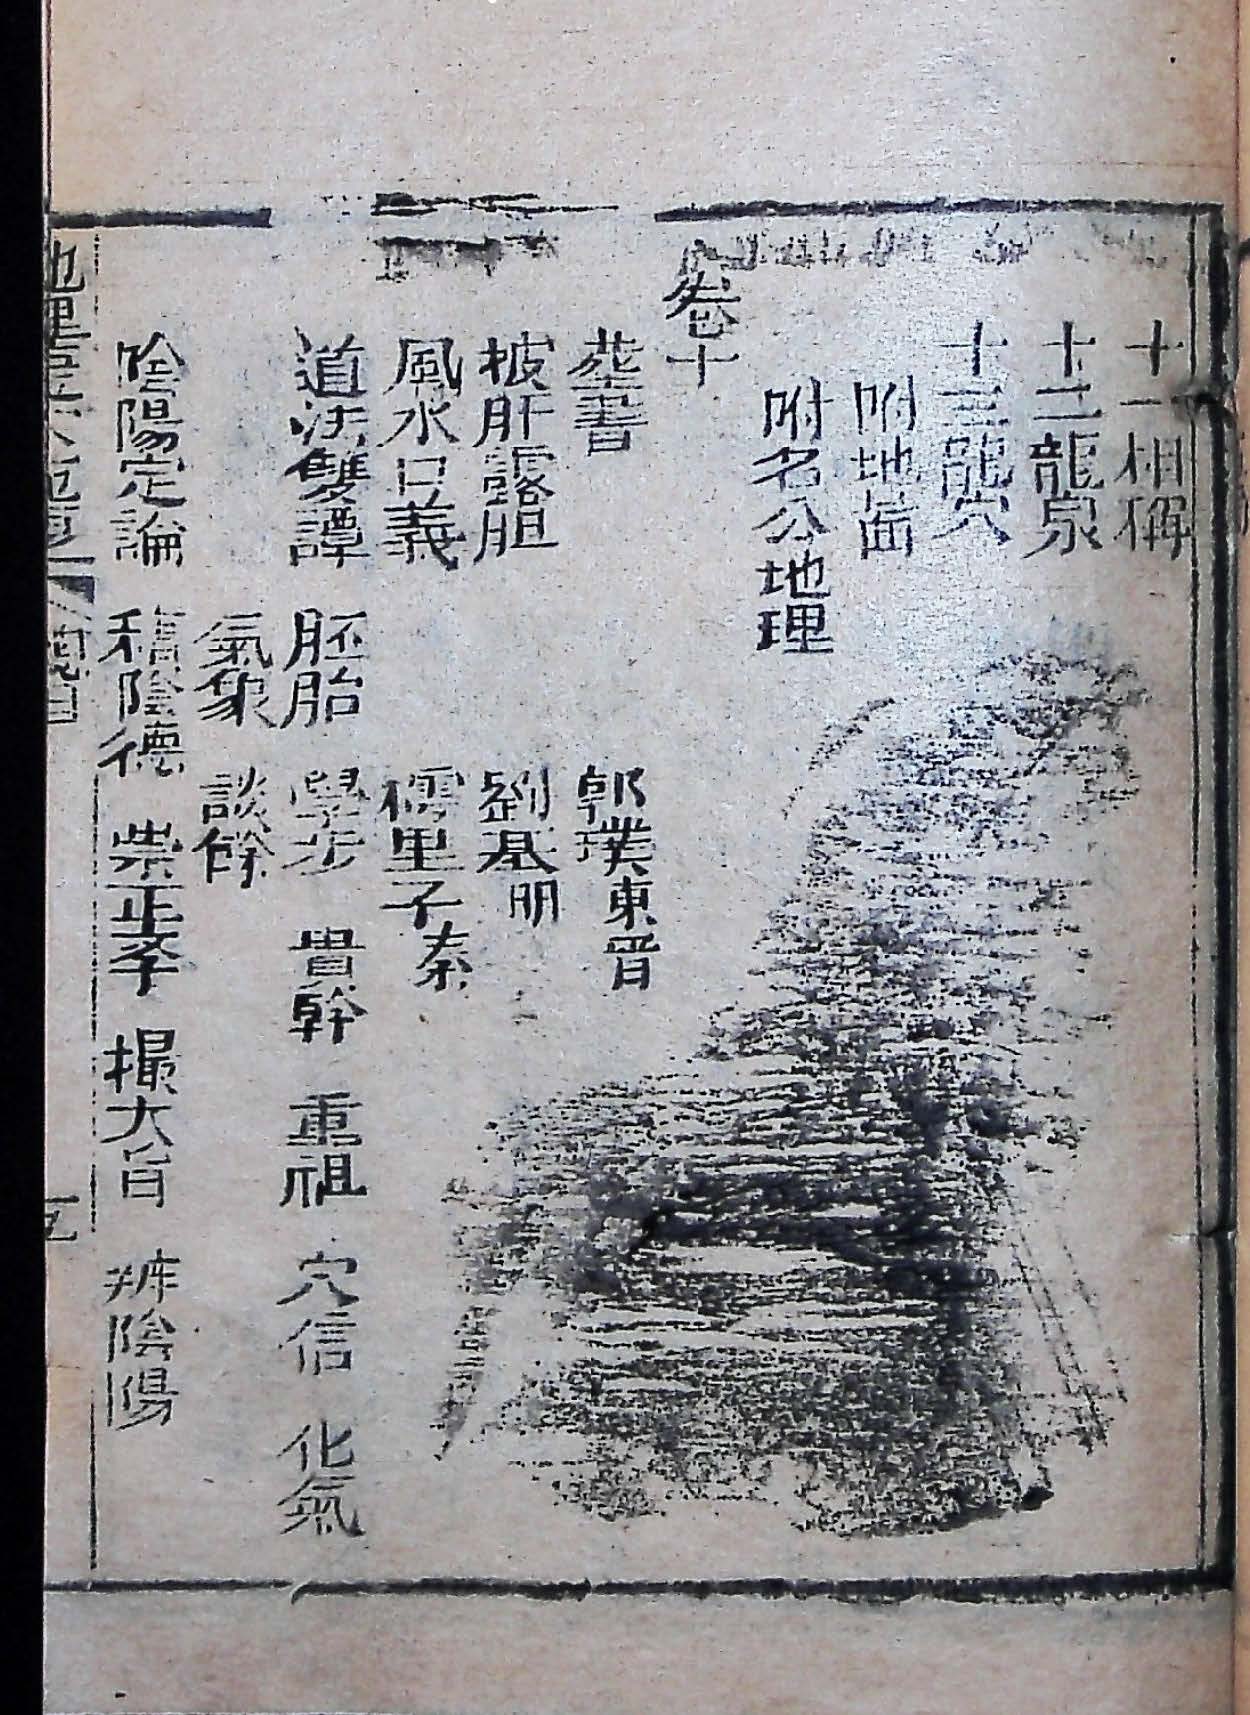 十一相稱
十二龍泉
十三龍穴
附地畓
附名公地理
卷十
塟書 郭璞東晋
披肝露胆 劉基明
風水口義 樗里子秦
道法雙譚 胚胎 學步 貴幹 重祖 穴信 化氣
氣象 談餘
陰陽定論 積陰德 崇正孝 撮大旨 辨陰陽
總目